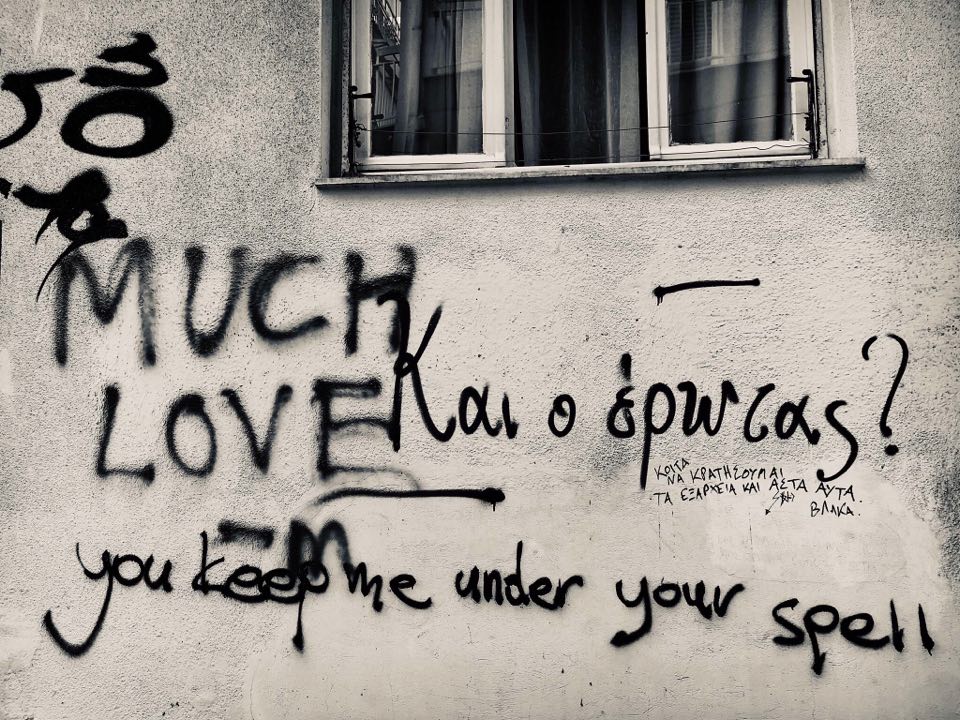 MUCH
LOVE
Και ο έρωτας?
ΚΟΙΤΑ
ΝΑ ΚΡΑΤΗΣΟΥΜΑΙ
ΤΑ ΕΞΑΡΧΕΙΑ ΚΑΙ ΑΣΤΑ ΑΥΤΑ.
ΒΛΑΚΑ.
you keep me under your spell